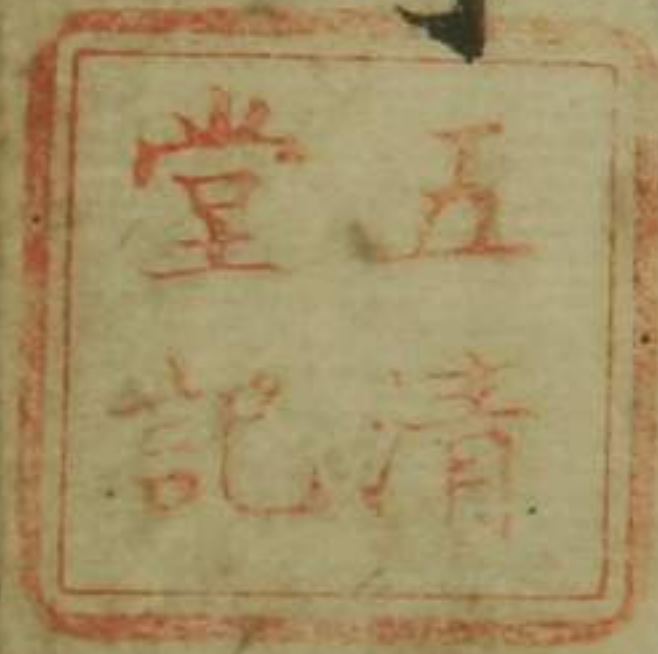 五清
堂記